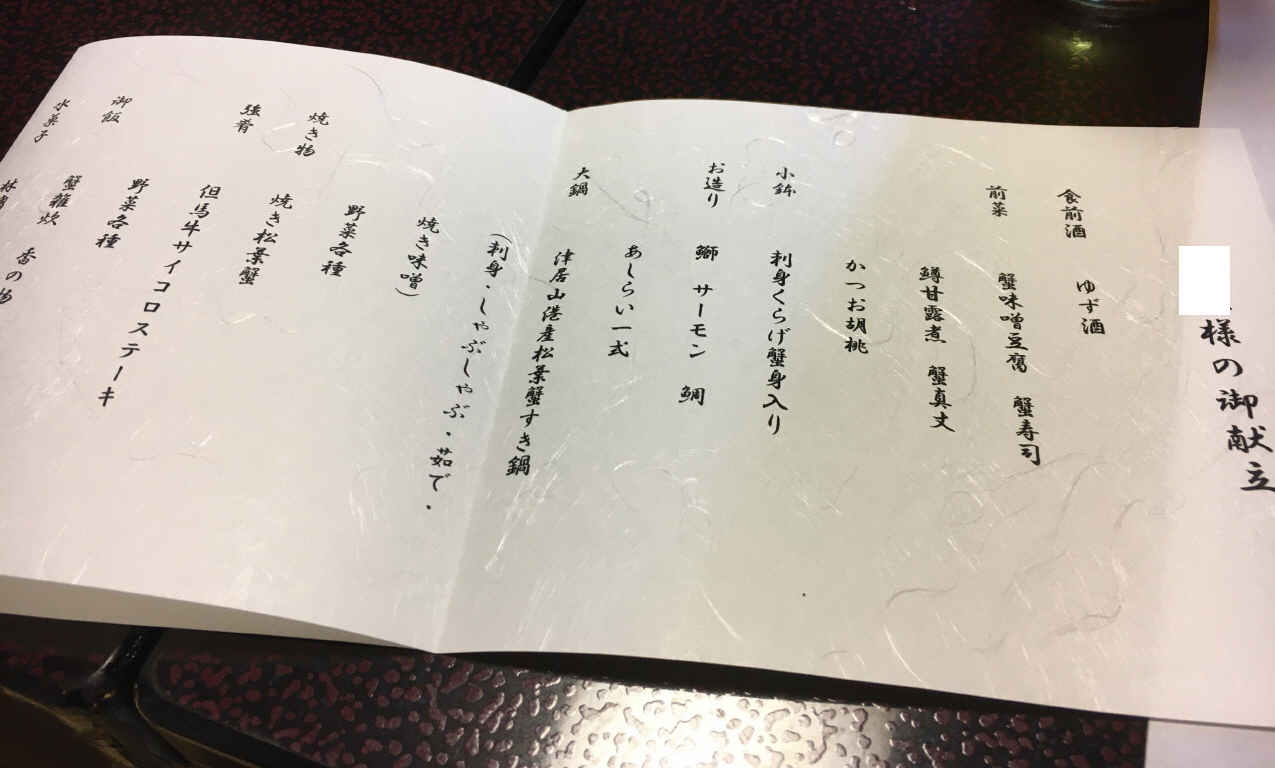 様の御献立
食前酒 ゆず酒
前菜 蟹味噌豆腐 蟹寿司
鱒甘露煮 蟹真丈
かつお胡桃
小鉢 刺身くらげ蟹身入り
お造り 鰤 サーモン 鯛
あしらい一式
大鍋 津居山港産松葉蟹すき鍋
(刺身・しゃぶしゃぶ・茹で・
焼き味噌)
野菜各種
焼き物 焼き松葉蟹
強肴 但馬牛サイコロステーキ
野菜各種
御飯 蟹雑炊 香の物
水菓子